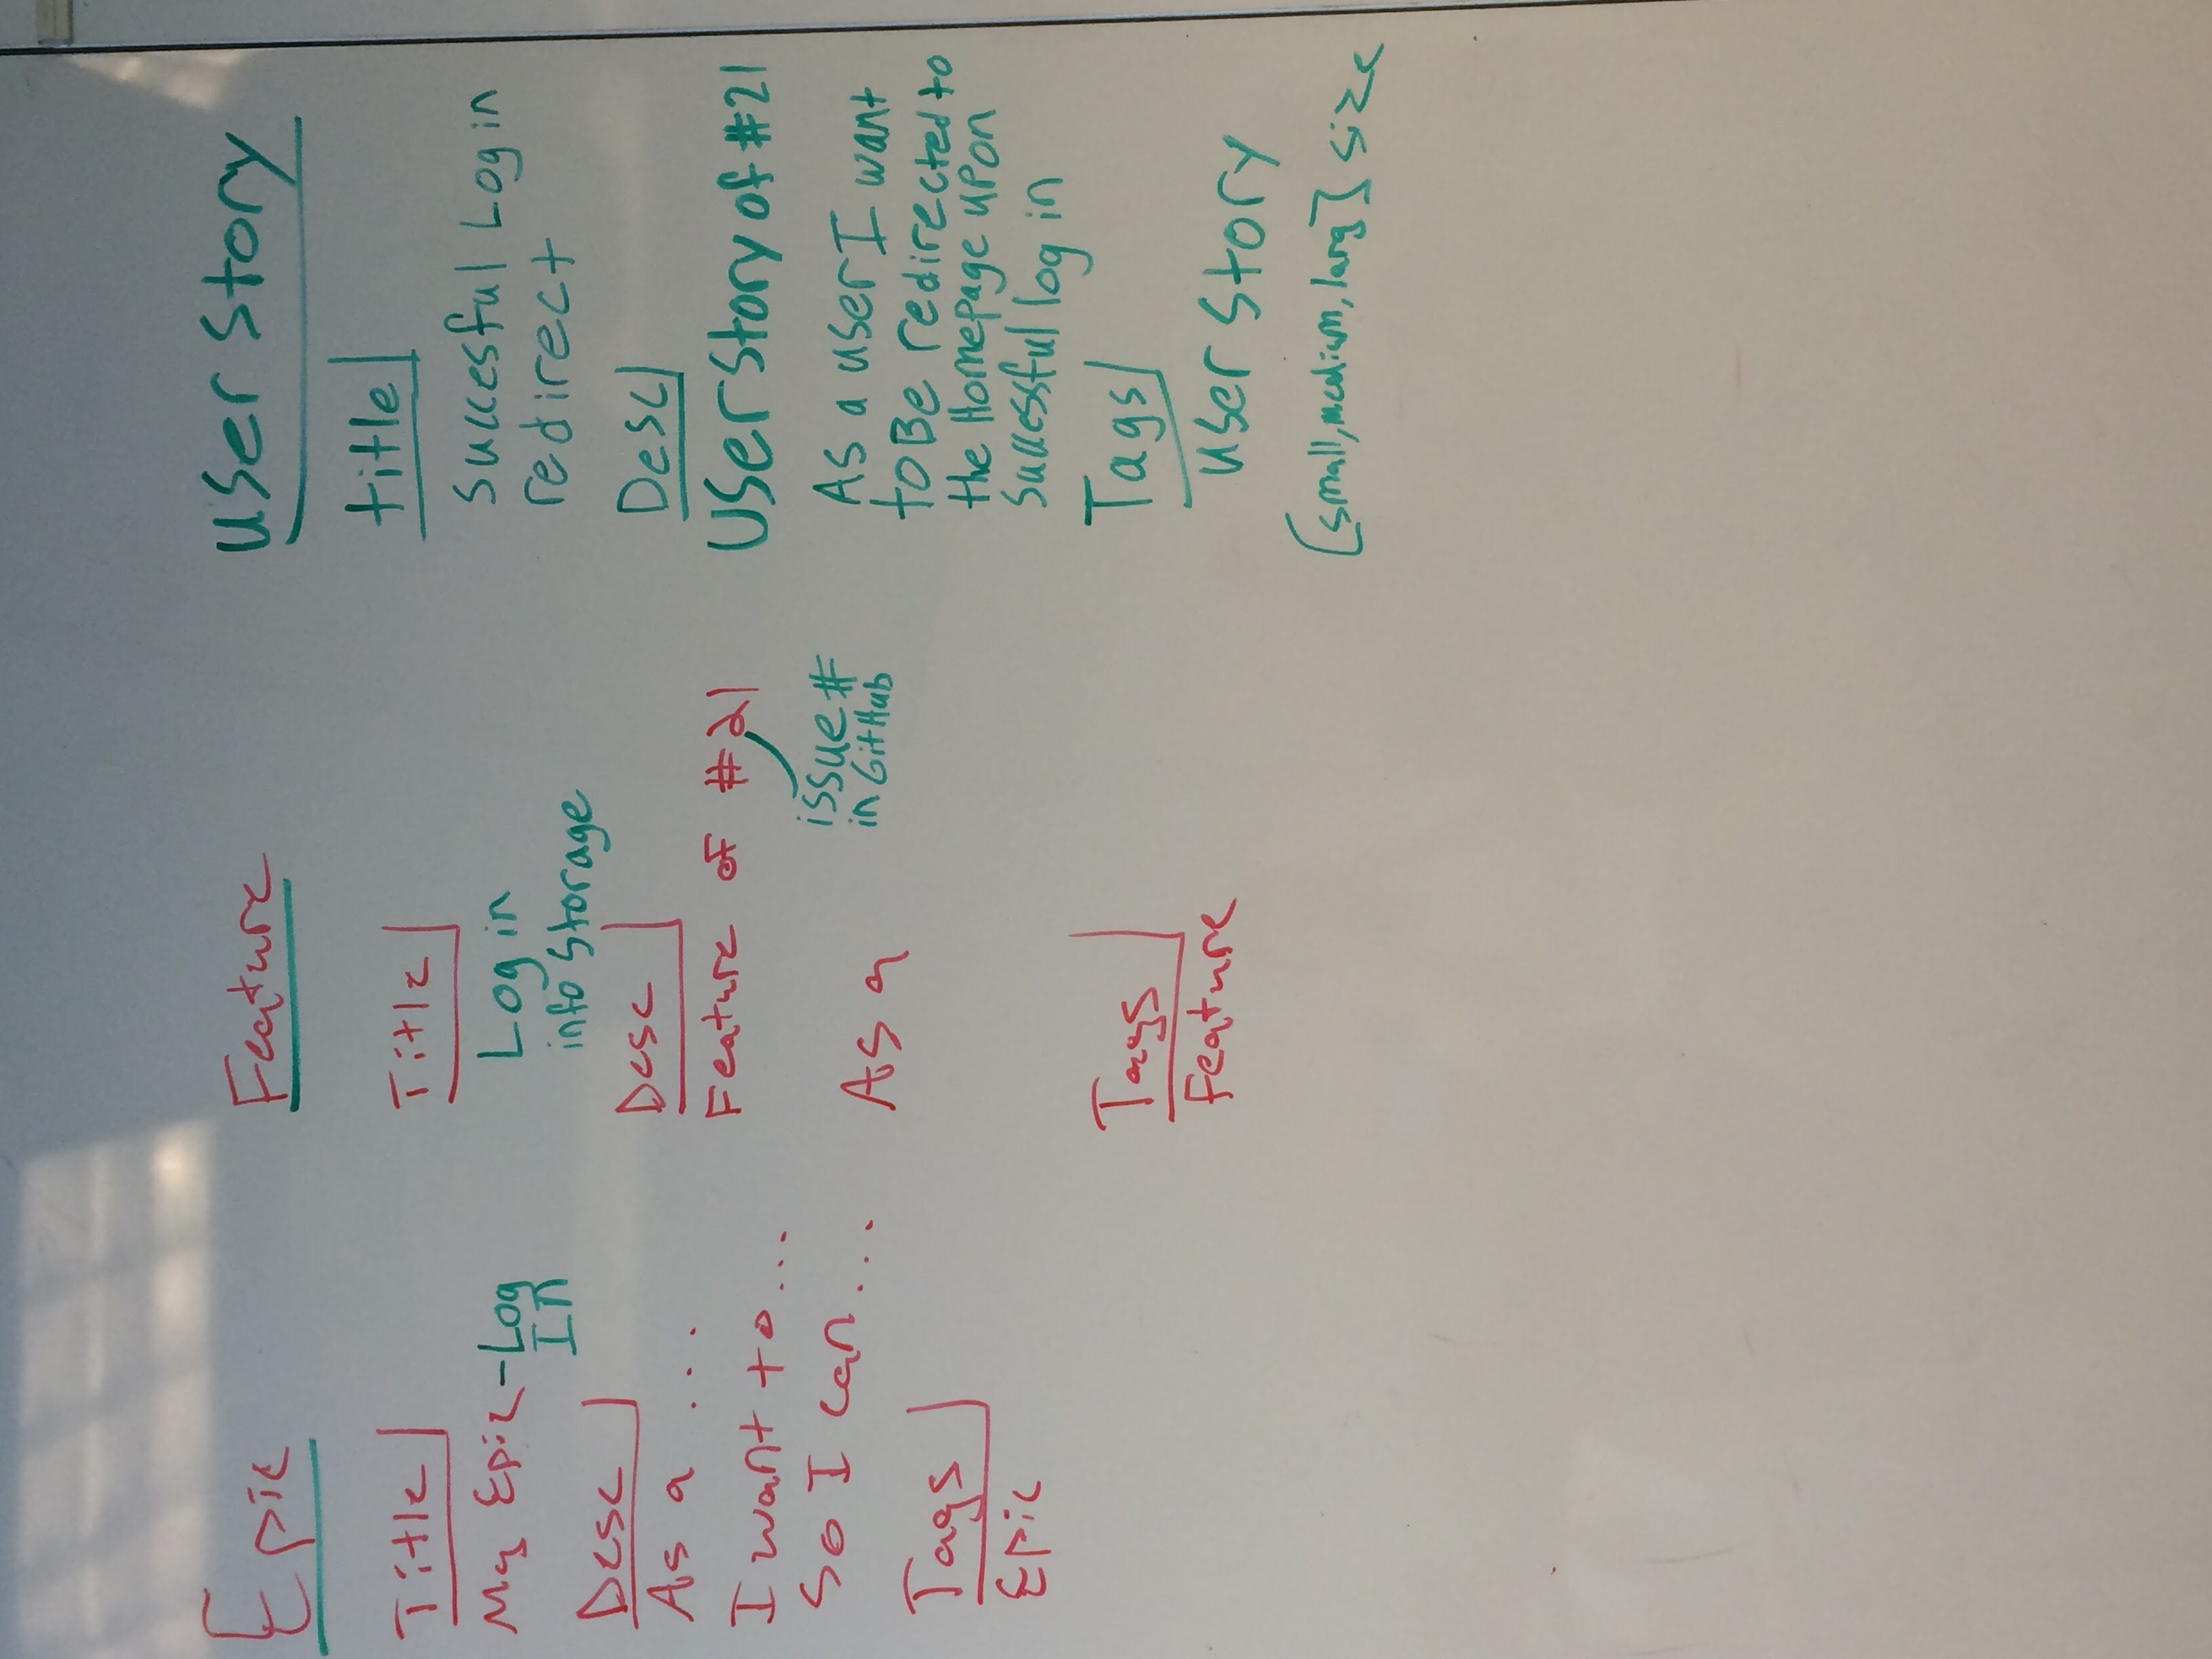 Epic
Title
My Epic - Log
In
Desc
As a ...
I want to...
So I can...
Tags
Epic
Feature
Title
Log in
info Storage
Desc
Feature of #21
issue #
in GitHub
As a
Tags
Feature
User Story
title
Succesful Log in
redirect
Desc
User Story of #21
As a user I want
to Be redirected to
the Homepage upon
Successful log in
Tags
User Story
[small, medium, larg] size